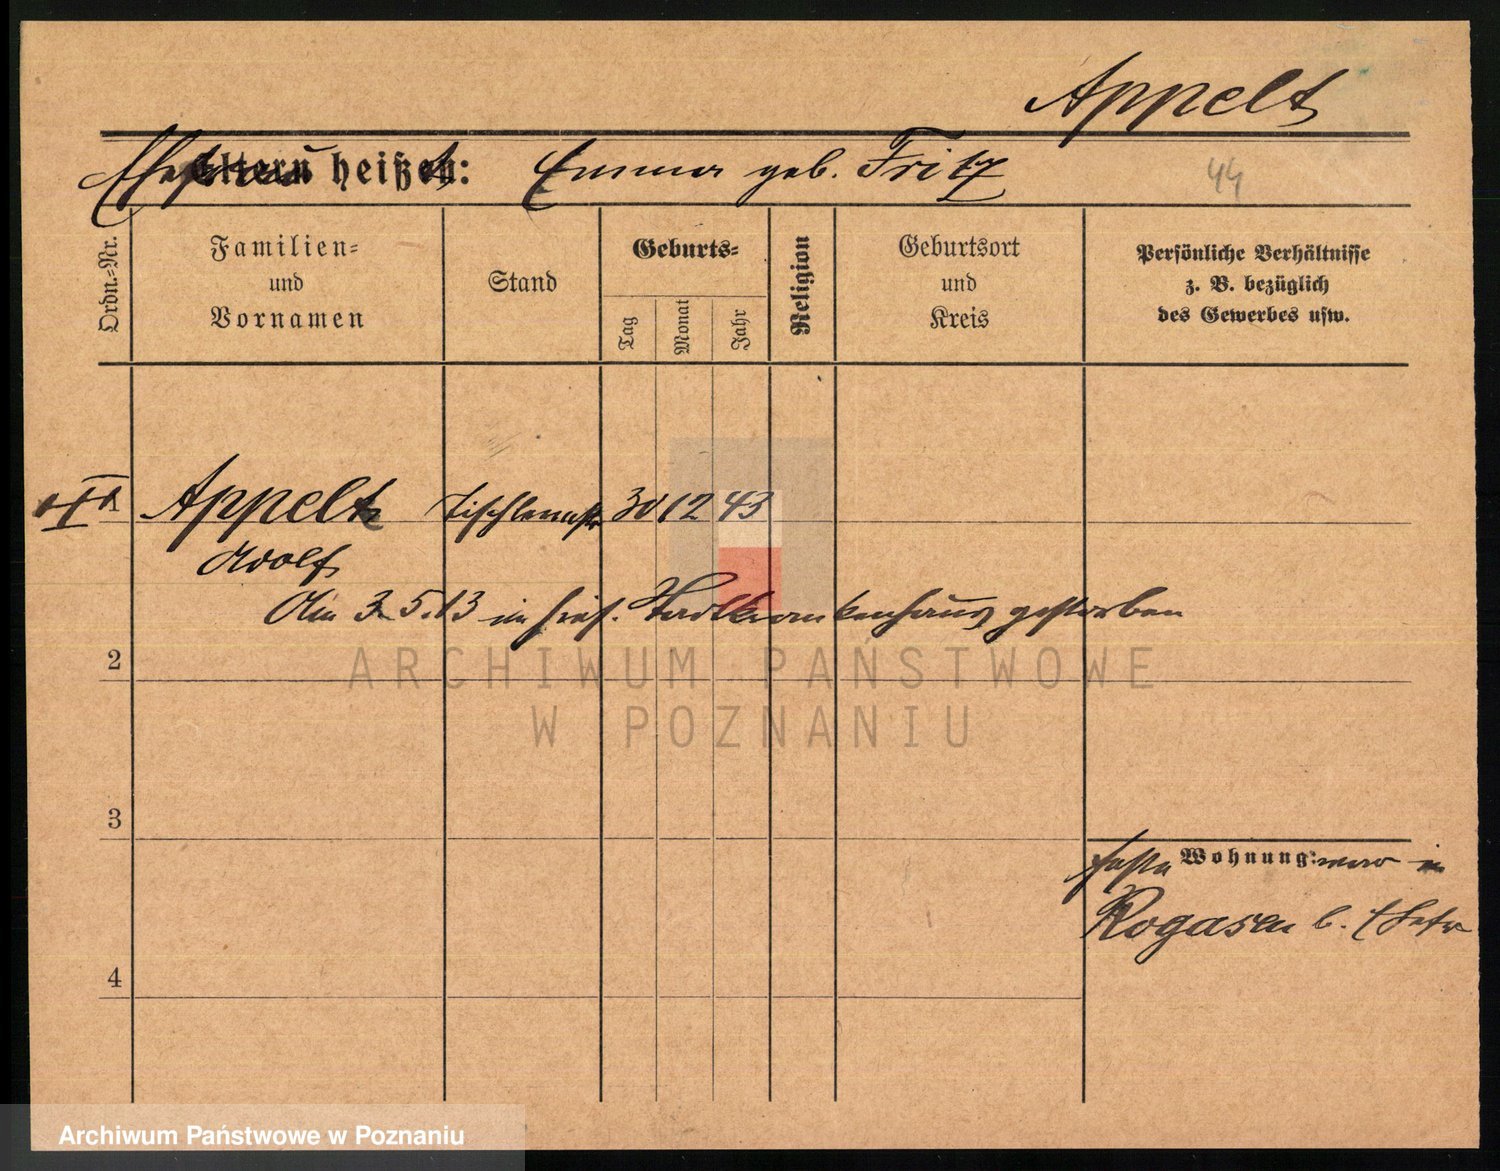 Appelt
Ehefrau heißt: Emma geb. Fritz
44
Ordn.-Nr.
Familien-
und
Vornamen
Stand
Geburts-
Tag
Monat
Jahr
Religion
Geburtsort
und
Kreis
Persönliche Verhältnisse
z. B. bezüglich
des Gewerbes usw.
1 Appelt Tischlermstr 30 12 43
Adolf
Am 3.5.13 im hies. Stadtkrankenhaus gestorben
2
ARCHIWUM PAŃSTWOWE
W POZNANIU
3
feste Wohnung: war in
Rogasen b.
4
Archiwum Państwowe w Poznaniu